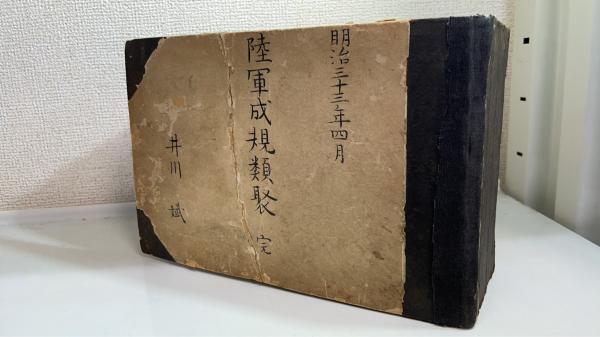 明治三十三年四月
陸軍成規類聚 完
井川 斌